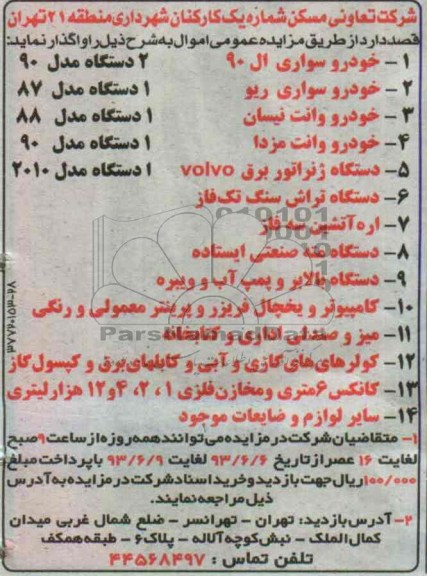 شرکت تعاونی مسکن شماره یک کارکنان شهرداری منطقه ۲۱ تهران
قصد دارد از طریق مزایده عمومی اموال به شرح ذیل را واگذار نماید:
۱- خودرو سواری ال ۹۰ ۲ دستگاه مدل ۹۰
۲- خودرو سواری ریو ۱ دستگاه مدل ۸۷
۳- خودرو وانت نیسان ۱ دستگاه مدل ۸۸
۴- خودرو وانت مزدا ۱ دستگاه مدل ۹۰
۵- دستگاه ژنراتور برق volvo ۱ دستگاه مدل ۲۰۱۰
۶- دستگاه تراش سنگ تک فاز
۷- اره آتشین سه فاز
۸- دستگاه مته صنعتی ایستاده
۹- دستگاه بالابر و پمپ آب و ویبره
۱۰- کامپیوتر و یخچال فریزر و پرینتر معمولی و رنگی
۱۱- میز و صندلی اداری و کتابخانه
۱۲- کولرهای های گازی و آبی و کابلهای برق و کپسول گاز
۱۳- کانکس ۶ متری ومخازن فلزی ۱، ۲، ۴ و ۱۲ هزار لیتری
۱۴- سایر لوازم و ضایعات موجود
۱- متقاضیان شرکت در مزایده می توانند همه روزه از ساعت ۹ صبح
لغایت ۱۶ عصر از تاریخ ۹۳/۶/۶ لغایت ۹۳/۶/۹ با پرداخت مبلغ
۱۰۰/۰۰۰ ریال جهت بازدید و خرید اسناد شرکت در مزایده به آدرس
ذیل مراجعه نمایند.
۲- آدرس بازدید: تهران - تهرانسر - ضلع شمال غربی میدان
کمال الملک - نبش کوچه آلاله - پلاک ۶ - طبقه همکف
تلفن تماس : ۴۴۵۶۸۴۹۷
ParsNamadData